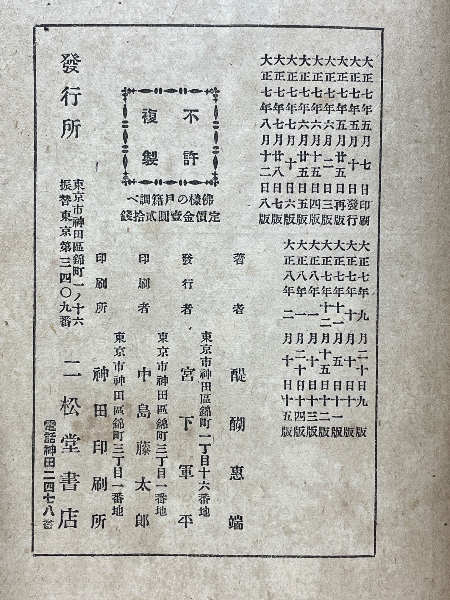 大正七年五月七日印刷
大正七年五月十日發行
大正七年五月廿五日再版
大正七年六月二日三版
大正七年六月十五日四版
大正七年六月廿五日五版
大正七年七月十日六版
大正七年八月十二日八版
大正七年九月二十日九版
大正七年十月十日十版
大正七年十一月五日十一版
大正七年十二月十五日十二版
大正八年一月十日十三版
大正八年二月十日十五版
不許
複製
佛樣の戸籍調べ
定價金壹圓貳拾錢
著者 醍醐惠端
東京市神田區錦町一丁目十六番地
發行者 宮下軍平
東京市神田區錦町三丁目一番地
印刷者 中島藤太郎
東京市神田區錦町三丁目一番地
印刷所 神田印刷所
發行所 東京市神田區錦町一ノ十六
振替東京第三四〇九番
二松堂書店
電話神田二四七八番